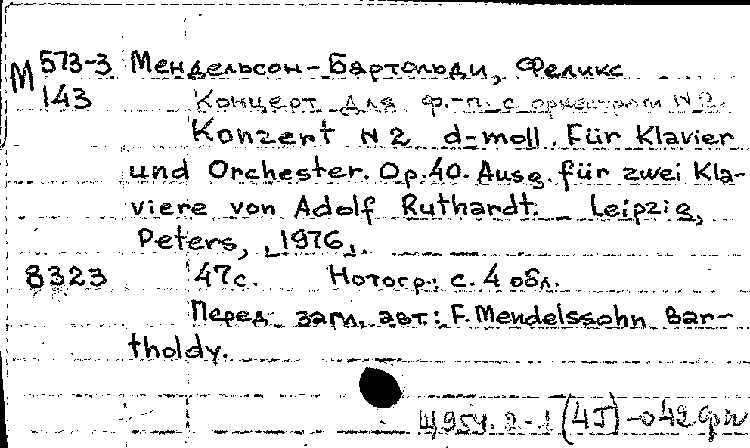 М 573-3 Мендельсон-Бартольди, Феликс
143 Концерт для ф.-п. с оркестром N2.
Konzert N2 d-moll. Für Klavier
und Orchester. Op.40. Ausg. für zwei Kla-
viere von Adolf Ruthardt. Leipzig,
Peters, [1976].
8323 47с. Нотогр.: с. 4 обл.
Перед загл. авт.: F. Mendelssohn Bar-
tholdy.